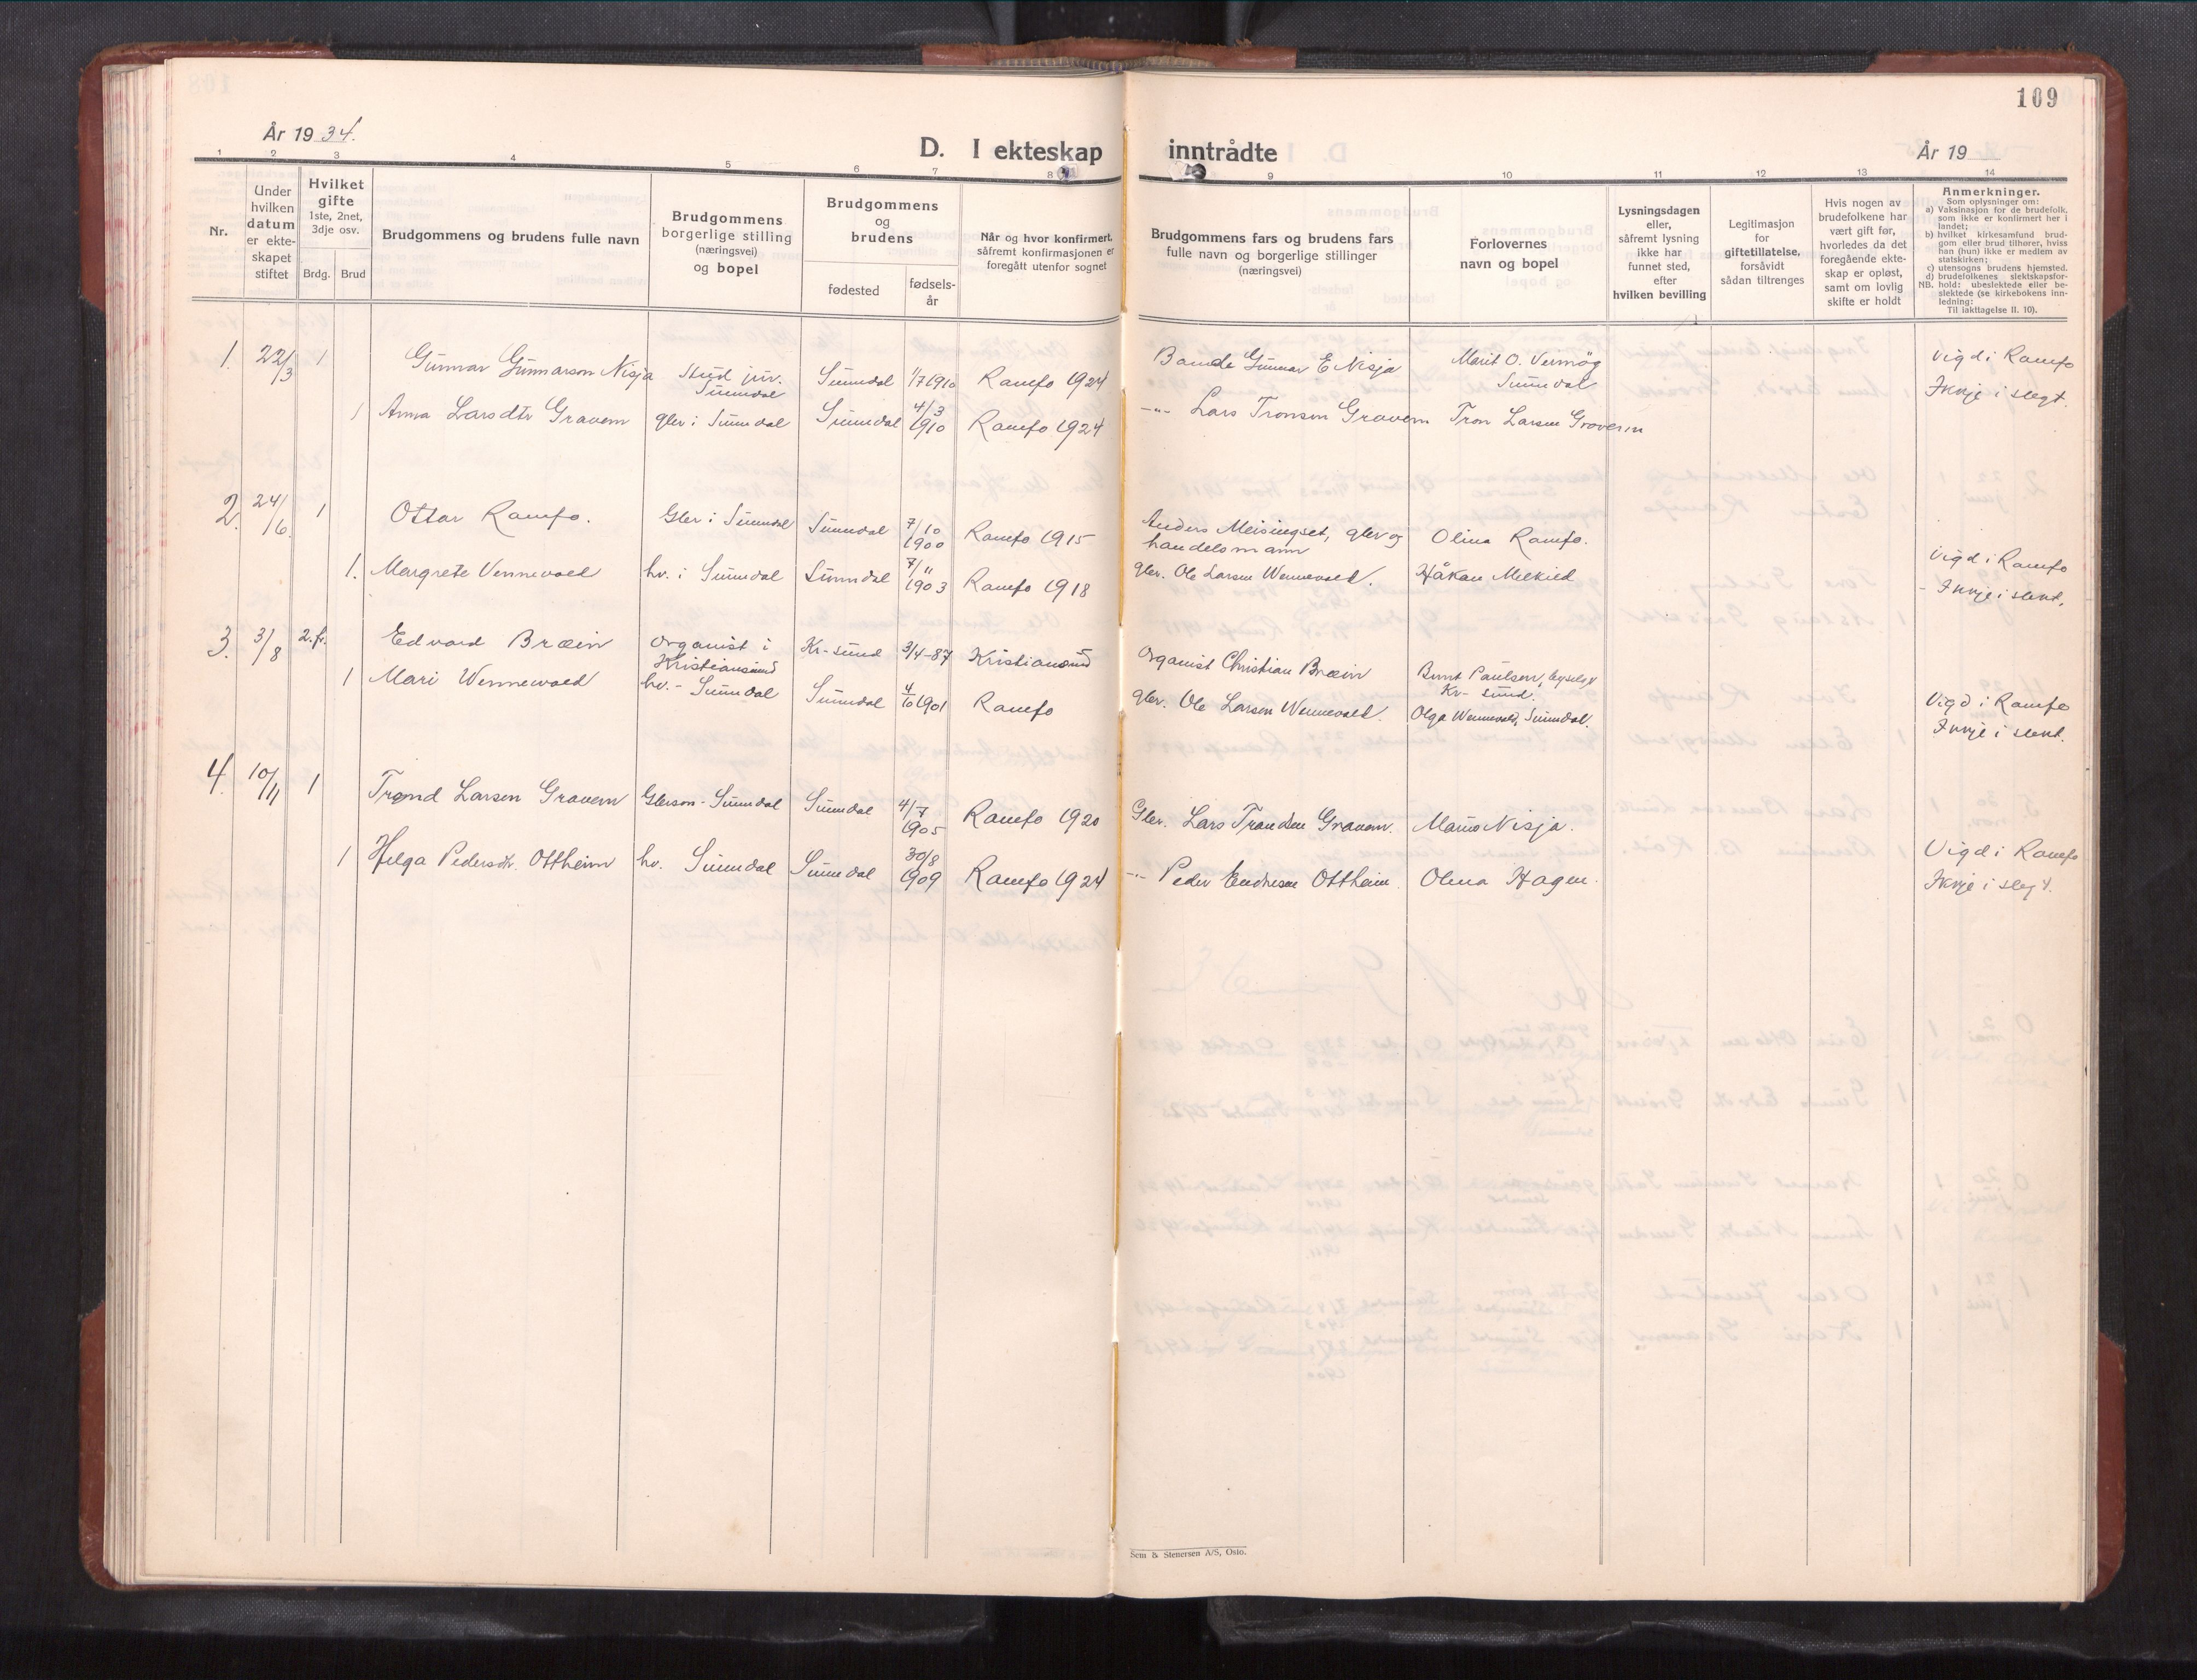 109
År 19 34.
D. I ekteskap inntrådte
År 19
1 2 3 4 5 6 7 8 9 10 11 12 13 14
Nr.
Under
hvilken
datum
er ekte-
skapet
stiftet
Hvilket
gifte
1ste, 2net,
3dje osv.
Brdg. Brud
Brudgommens og brudens fulle navn
Brudgommens
borgerlige stilling
(næringsvei)
og bopel
Brudgommens
og
brudens
fødested
fødsels-
år
Når og hvor konfirmert,
såfremt konfirmasjonen er
foregått utenfor sognet
Brudgommens fars og brudens fars
fulle navn og borgerlige stillinger
(næringsvei)
Forlovernes
navn og bopel
Lysningsdagen
eller,
såfremt lysning
ikke har
funnet sted,
efter
hvilken bevilling
Legitimasjon
for
giftetillatelse,
forsåvidt
sådan tiltrenges
Hvis nogen av
brudefolkene har
vært gift før,
hvorledes da det
foregående ekte-
skap er opløst,
samt om lovlig
skifte er holdt
Anmerkninger.
Som oplysninger om:
a) Vaksinasjon for de brudefolk,
som ikke er konfirmert her i
landet;
b) hvilket kirkesamfund brud-
gom eller brud tilhører, hviss
han (hun) ikke er medlem av
statskirken;
c) utensogns brudens hjemsted.
d) brudefolkenes slektskapsfor-
NB. hold: ubeslektede eller be-
slektede (se kirkebokens inn-
ledning:
Til iakttagelse II. 10).
1. 22/3 1 Gunnar Gunnarson Nisja Stud jur. Sunndal 1/7 1910 Romfo 1924 Bonde Gunnar E Nisja Marit O. Vermøy Vigd i Romfo
Sunndal Sunndal Ikkje i slegt.
1 Anna Larsdtr Gravem gbr i Sunndal Sunndal 4/3 1910 Romfo 1924 -"- Lars Tronsen Gravem Tron Larsen Gravem
2. 24/6. 1 Ottar Romfo. Gbr i Sunndal Sunndal 7/10 1900 Romfo 1915 Anders Meisingset, gbr og Olina Romfo.
handelsmann Vigd i Romfo
1. Margrete Vennevold hv. i Sunndal Sunndal 7/11 1903 Romfo 1918 gbr. Ole Larsen Wennevold. Håkon Melkild - Ikkje i slekt.
3. 3/8 2. fr. Edvard Bræin organist i Kr-sund 3/4-87 Kristiansund Organist Christian Bræin Bernt Paulsen,
Kristiansund Kr-sund.
1 Mari Wennevold hv. - Sunndal Sunndal 4/10 1901 Romfo gbr. Ole Larsen Wennevold. Olga Wennevold, Sunndal. Vigd i Romfo
Ikkje i slekt.
4. 10/11 1 Trond Larsen Gravem Gbrson - Sunndal Sunndal 4/7 1905 Romfo 1920 Gbr. Lars Trondsen Gravem. Marius Nisja.
1 Helga Pedersdtr. Ottheim hv. Sunndal Sunndal 30/8 1909 Romfo 1924 -"- Peder Endresen Ottheim. Olina Hagen. Vigd i Romfo
Ikkje i slegt.
Sem & Stenersen A/S, Oslo.